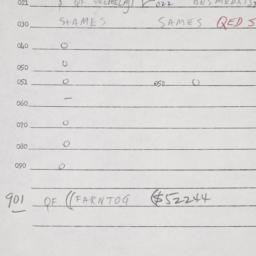 021 022
030 SHAMES SAMES QED S
040 O
050 O
051 O 050 O
060 —
070 O
080 O
090 O
901 QF ((FARNTOG ($52244